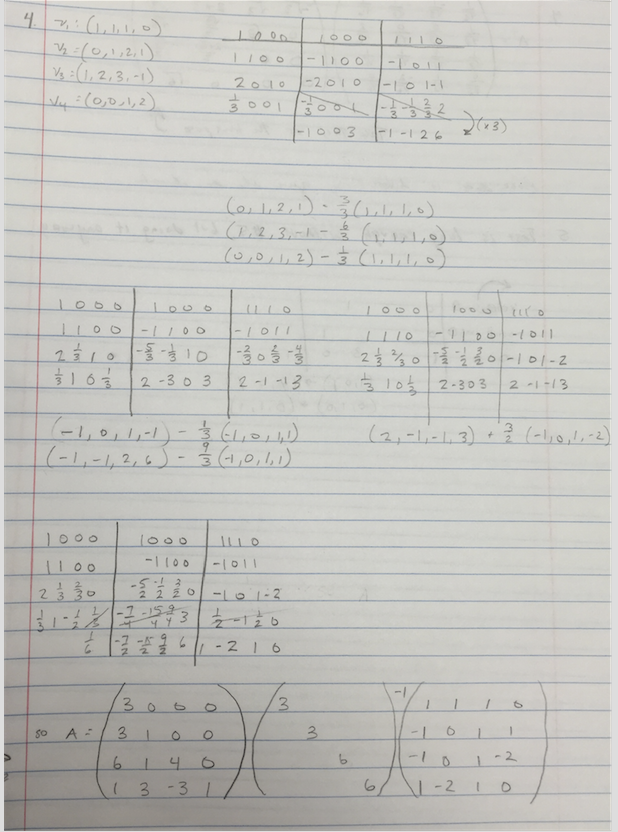 4. v₁ : (1,1,1,0) 1 0 0 0 | 1 0 0 0 | 1 1 1 0
v₂ = (0,1,2,1) 1 1 0 0 | -1 1 0 0 | -1 0 1 1
v₃ = (1,2,3,-1) 2 0 1 0 | -2 0 1 0 | -1 0 1 -1
v₄ = (0,0,1,2) 1/3 0 0 1 | -1/3 0 0 1 | -1/3 -1/3 2/3 2
-1 0 0 3 | -1 -1 2 6 (×3)
(0,1,2,1) - 3/3 (1,1,1,0)
(1,2,3,-1 - 6/3 (1,1,1,0)
(0,0,1,2) - 1/3 (1,1,1,0)
1 0 0 0 | 1 0 0 0 | 1 1 1 0 1 0 0 0 | 1 0 0 0 | 1 1 1 0
1 1 0 0 | -1 1 0 0 | -1 0 1 1 1 1 1 0 | -1 1 0 0 | -1 0 1 1
2 1/3 1 0 | -5/3 -1/3 1 0 | -2/3 0 2/3 -4/3 2 1/3 2/3 0 | -5/2 -1/2 3/2 0 | -1 0 1 -2
1/3 1 0 1/3 | 2 -3 0 3 | 2 -1 -1 3 1/3 1 0 1/3 | 2 -3 0 3 | 2 -1 -1 3
(-1,0,1,-1) - 1/3 (-1,0,1,1) (2,-1,-1,3) + 3/2 (-1,0,1,-2)
(-1,-1,2,6) - 9/3 (-1,0,1,1)
1 0 0 0 | 1 0 0 0 | 1 1 1 0
1 1 0 0 | -1 1 0 0 | -1 0 1 1
2 1/3 2/3 0 | -5/2 -1/2 3/2 0 | -1 0 1 -2
1/3 1 -1/2 1/3 | -7/4 -15/4 9/4 3 | 1/2 -1 1/2 0
1/6 | -7/2 -15/2 9/2 6 | 1 -2 1 0
so A = (3 0 0 0) (3 )⁻¹ (1 1 1 0)
(3 1 0 0) ( 3 ) (-1 0 1 1)
(6 1 4 0) ( 6 ) (-1 0 1 -2)
(1 3 -3 1) ( 6) (1 -2 1 0)